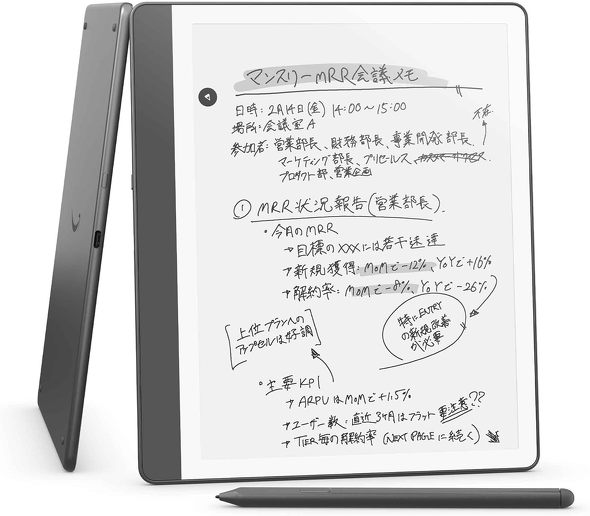 マンスリーMRR会議メモ
日時: 2月14日(金) 14:00〜15:00
場所: 会議室A
参加者: 営業部長、財務部長、事業開発部長、
不在
マーケティング部長、プリセールス、
プロダクト部、営業企画
① MRR状況報告(営業部長)
・今月のMRR
→目標のXXXには若干未達
→新規獲得: MoMで-12%、YoYで+16%
→解約率: MoMで-8%、YoYで-26%
[上位プランへの
アップセルは好調]
特にENTRY
の新規改善
が必要
・主要KPI
→ARPUはMoMで+1.5%
→ユーザー数: 直近3ヶ月はフラット 要注意??
→TIER毎の解約率 (NEXT PAGEに続く)